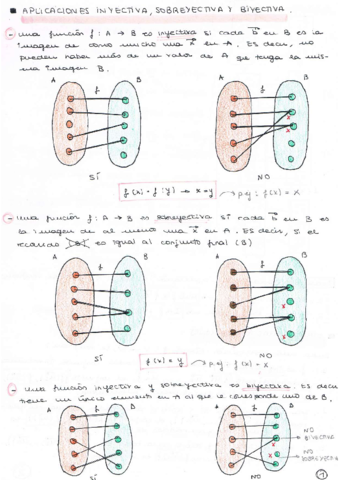 ■ APLICACIONES INYECTIVA, SOBREYECTIVA Y BIYECTIVA.
- una función f: A → B es inyectiva si cada b en B es la
imagen de como mucho una x en A. Es decir, no
pueden haber más de un valor de A que tenga la mis-
ma imagen B.
A f B
A f B
x
x
SÍ
NO
f(x) = f(y) → x = y → p.ej: f(x) = x
- una función f: A → B es sobreyectiva si cada b en B es
la imagen de al menos una x en A. Es decir, si el
es igual al conjunto final (B)
A f B
A f B
x
x
SÍ
NO
f(x) = y → p.ej: f(x) = x
- una función inyectiva y sobreyectiva es biyectiva. Es decir
tiene un único elemento en A al que le corresponde uno de B.
A f B
A f B
x
x
NO
INYECTIVA
NO
SOBREYECTIVA
SÍ
NO
1